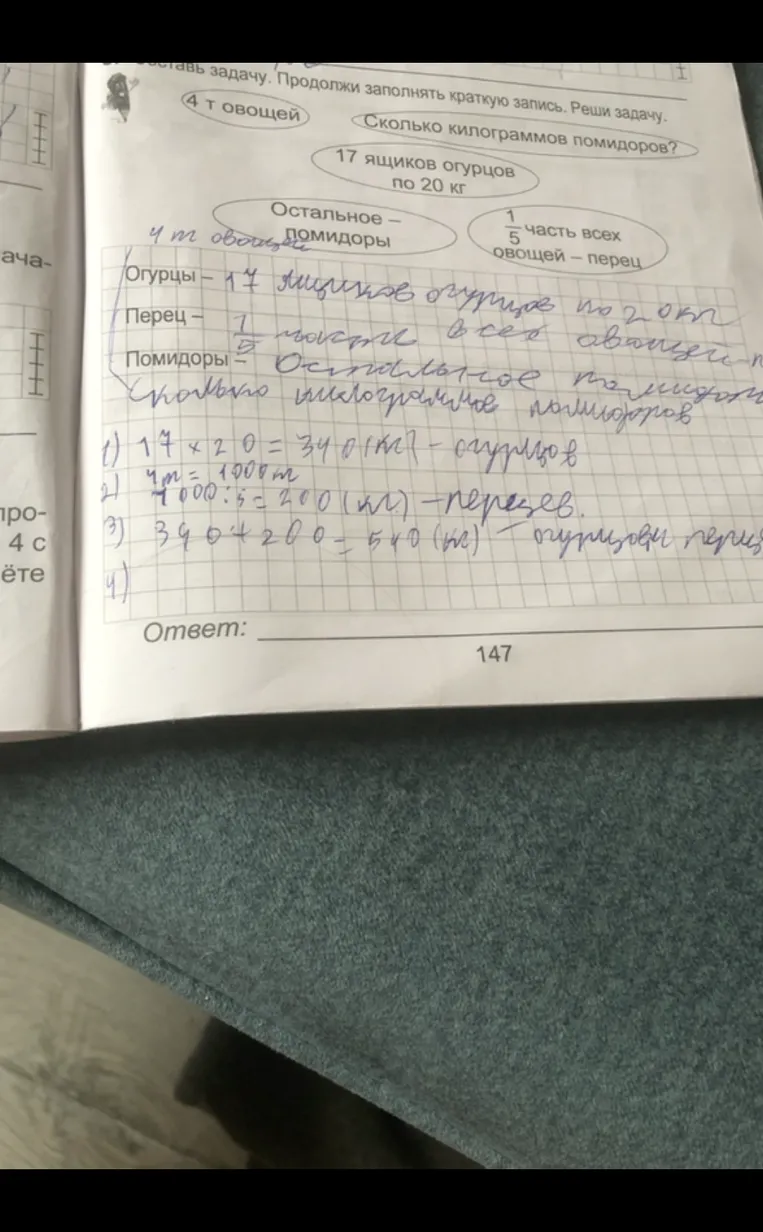 задачу. Продолжи заполнять краткую запись. Реши задачу.
4 т овощей
Сколько килограммов помидоров?
17 ящиков огурцов
по 20 кг
Остальное –
помидоры
1/5 часть всех
овощей – перец
4 т овощей
ача-
Огурцы – 17 ящиков огурцов по 20 кг
Перец – 1/5 части всех овощей-п
Помидоры – Остальное помидор
Сколько килограммов помидоров
1) 17 × 20 = 340 (кг) – огурцов
4т = 1000
2) 1000:5 = 200 (кг) – перцев.
3) 340 + 200 = 540 (кг) – огурцов и перц
4)
про-
4 с
ёте
Ответ:
147